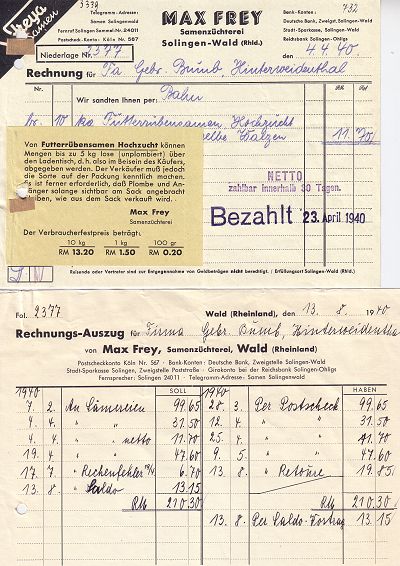 Freya
Samen
3372
Telegramm-Adresse:
Samen Solingenwald
Fernruf Solingen Sammel Nr. 24011
Postscheck-Konto Köln Nr. 567
MAX FREY
Samenzüchterei
Solingen-Wald (Rhld.)
732
Bank-Konten:
Deutsche Bank, Zweigst. Solingen-Wald
Stadt-Sparkasse, Solingen-Wald
Reichsbank Solingen-Ohligs
Niederlage Nr. 2377
4.4.40
Rechnung für Fa Gebr. Bumb, Hinterweidenthal
Wir sandten Ihnen per: Bahn
RM Rpf
Nr. 10 kg Futterrübensamen, Hochzucht
gelbe Walzen 11.70
Von Futterrübensamen Hochzucht können
Mengen bis zu 5 kg lose (unplombiert) über
den Ladentisch, d. h. also im Beisein des Käufers,
abgegeben werden. Der Verkäufer muß jedoch
die Sorte auf der Packung kenntlich machen.
Es ist ferner erforderlich, daß Plombe und An-
hänger solange sichtbar am Sack angebracht
haben, wie aus dem Sack verkauft wird.
Max Frey
Samenzüchterei
Der Verbraucherfestpreis beträgt:
10 kg 1 kg 100 gr
RM 13.20 RM 1.50 RM 0.20
NETTO
zahlbar innerhalb 30 Tagen.
Bezahlt 23. April 1940
Reisende oder Vertreter sind zur Entgegennahme von Geldbeträgen nicht berechtigt. / Erfüllungsort Solingen-Wald (Rhld.)
Fol. 2377
Wald (Rheinland), den 13. 8. 1940
Rechnungs-Auszug für Firma Gebr. Bumb, Hinterweidentha
von Max Frey, Samenzüchterei, Wald (Rheinland)
Postscheckkonto Köln Nr. 567 · Bank-Konten: Deutsche Bank, Zweigstelle Solingen-Wald
Stadt-Sparkasse Solingen, Zweigstelle Poststraße · Girokonto bei der Reichsbank Solingen-Ohligs
Fernsprecher: Solingen 24011 · Telegramm-Adresse: Samen Solingenwald
1940 SOLL 1940 HABEN
7. 2. An Sämereien 99.65 20. 3. Per Postscheck 99.65
4. 4. " " 31.50 12. 4. " " 31.50
4. 4. " " netto 11.70 25. 4. " " 11.70
19. 4. " " 47.60 9. 5. " " 47.60
17. 7. " Rechenfehler 19/4. 6.70 13. 8. " Retoure 19.85
13. 8. " Saldo 13.15
RM 210.30 RM 210.30
13. 8. Per Saldo-Vortrag 13.15